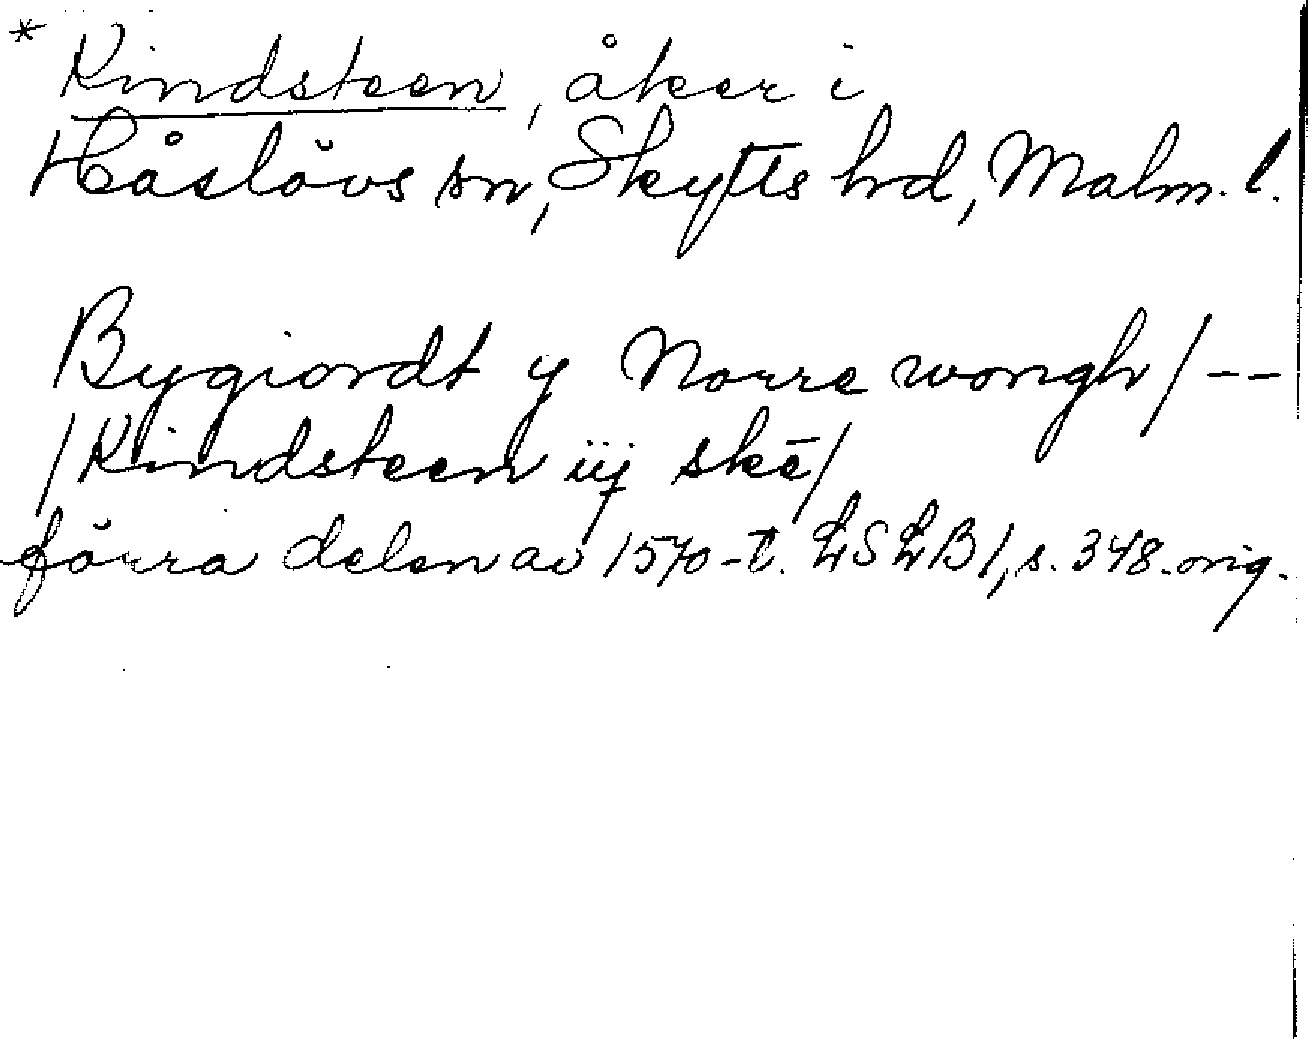 * Kindsteen, åker i
Håslövs sn, Skytts hrd, Malm. l.
Bygiordt y Norre wongh/--
/Kindsteen iij skē/
förra delen av 1570-t. LSLB1, s. 348. orig.